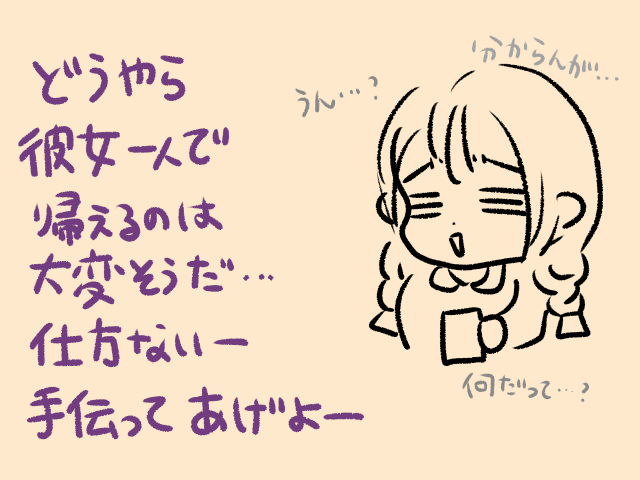 どうやら
彼女一人で
帰えるのは
大変そうだ…
仕方ないー
手伝ってあげよー
うん…?
分からんが…
何だって…?